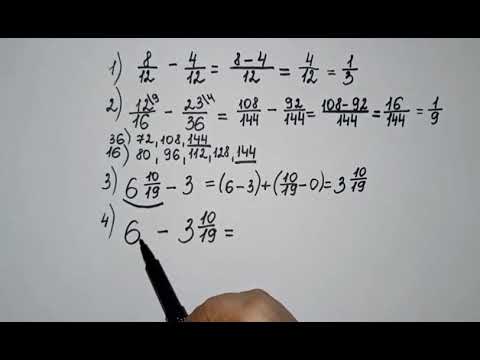 1) 8/12 - 4/12 = 8-4/12 = 4/12 = 1/3
2) 12\9/16 - 23\4/36 = 108/144 - 92/144 = 108-92/144 = 16/144 = 1/9
36) 72, 108, 144
16) 80, 96, 112, 128, 144
3) 6 10/19 - 3 = (6-3)+(10/19-0)= 3 10/19
4) 6 - 3 10/19 =